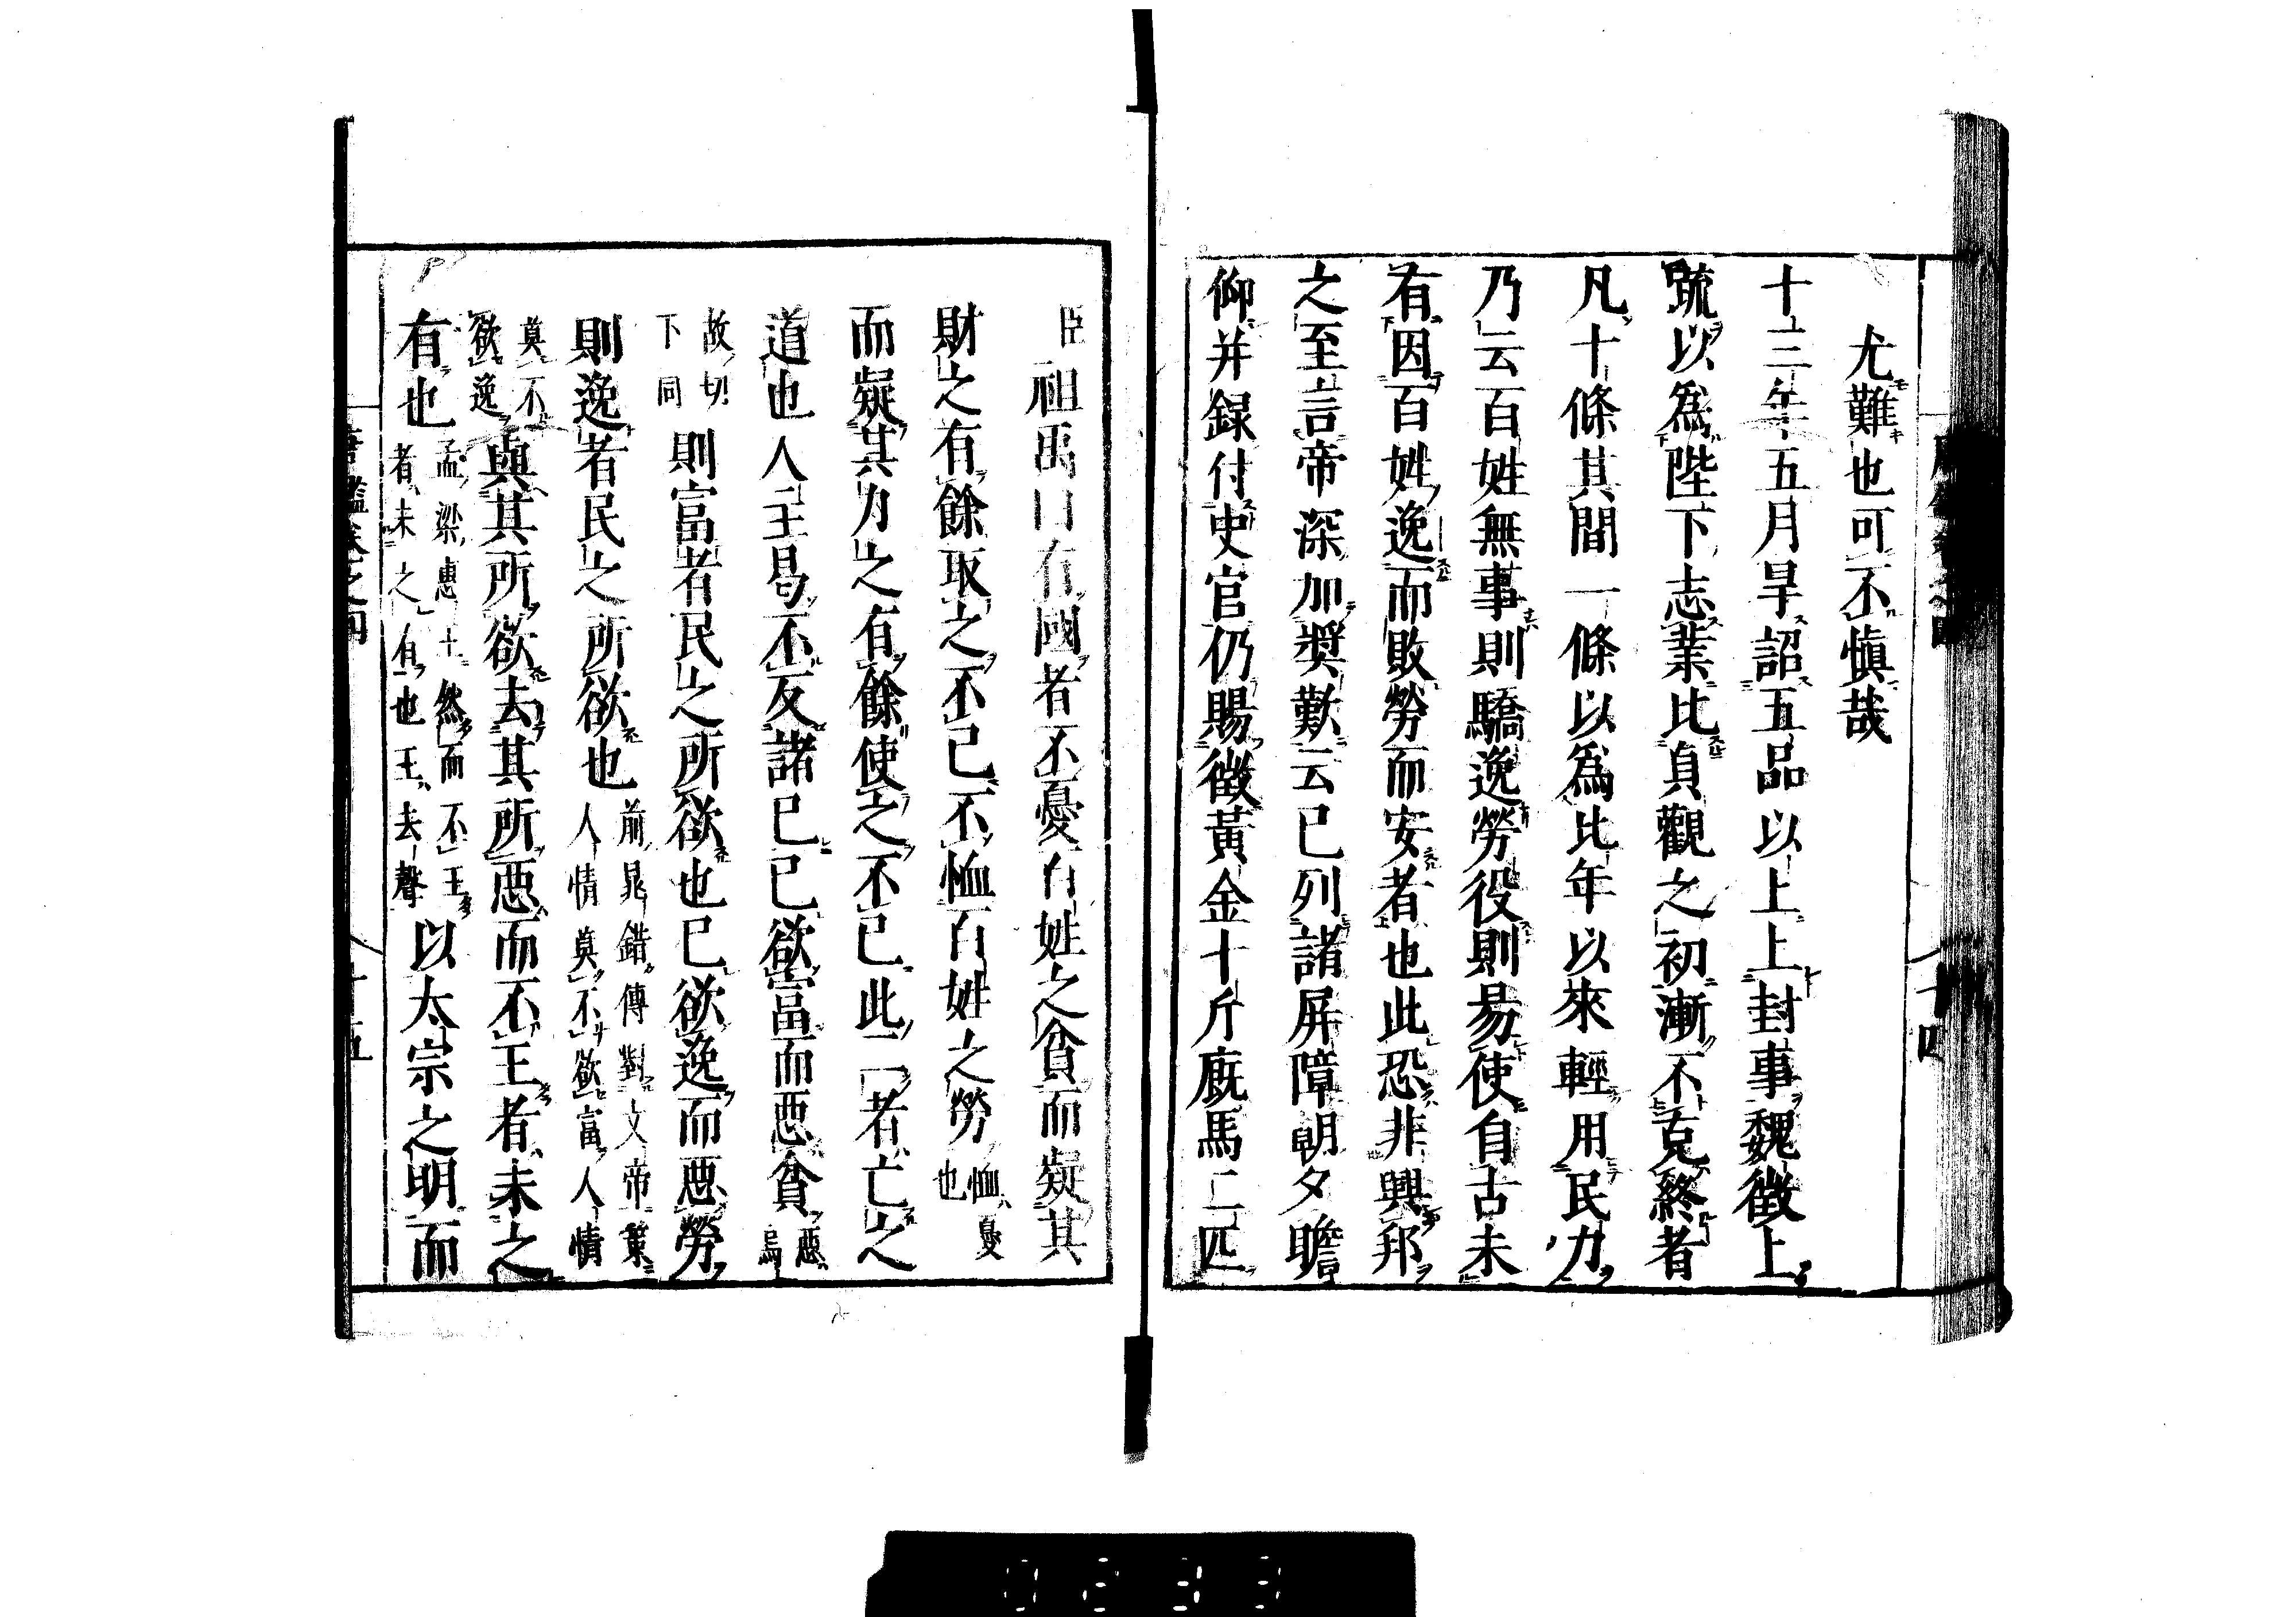 尤難也可不愼哉
十三年五月旱詔五品以上上封事魏徵上
疏以爲陛下志業比貞觀之初漸不克終者
凡十條其間一條以爲比年以來輕用民力
乃云百姓無事則驕逸勞役則易使自古未
有因百姓逸而敗勞而安者也此恐非興邦
之至言帝深加奬歎云已列諸屏障朝夕瞻
仰并録付史官仍賜徵黃金十斤廐馬二匹
臣祖禹曰有國者不憂百姓之貧而疑其
財之有餘取之不已不恤百姓之勞恤憂也
而疑其力之有餘使之不已此二者亡之
道也人主曷不反諸已已欲富而惡貧惡烏
故切下同則富者民之所欲也已欲逸而惡勞
則逸者民之所欲也前晁錯傳對文帝策人情莫不欲富人情
莫不欲逸與其所欲去其所惡而不王者未之
有也孟梁惠上然而不王者未之有也王去聲以太宗之明而
唐鑑卷之四
十五
十四
0233